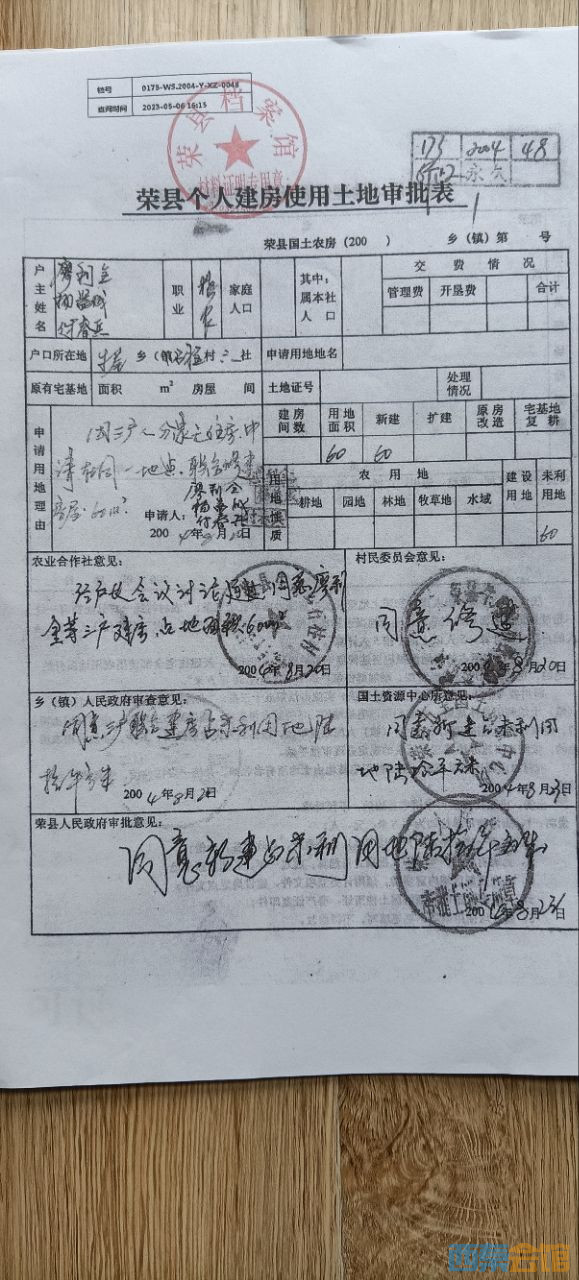 档号 0175-WS.2004-Y-XZ-0048
查阅时间 2023-05-06 16:15
荣县档案馆
材料证明专用章
173 2004 48
永久
荣县个人建房使用土地审批表
荣县国土农房(200 ) 乡(镇)第 号
户主姓名
职业
农
家庭人口
其中:属本社人口
交费情况
管理费 开垦费 合计
户口所在地 乡(镇) 村 社 申请用地地名
原有宅基地 面积 m² 房屋 间 土地证号 处理情况
申请用地理由
建房间数 用地面积 新建 扩建 原房改造 宅基地复耕
60 60
用地性质
农用地 建设用地 未利用地
耕地 园地 林地 牧草地 水域
60
因三户人分家无住房,申
请在同一地点,联合修建
房屋:60m²
申请人:
2004年8月20日
农业合作社意见:
经户代会议讨论通过,同意廖利
全等三户建房占地面积60m²
2004年8月20日
村民委员会意见:
同意修建
2004年8月20日
乡(镇)人民政府审查意见:
同意三户联合建房占未利用地陆
拾平方米
2004年8月2 日
国土资源中心所意见:
同意新建占未利用
地陆拾平方米
2004年8月23日
荣县人民政府审批意见:
同意新建占未利用地陆拾平方米
2004年8月23日